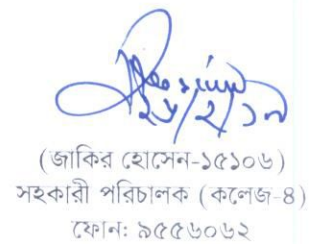 ২৮/২/১৭
(জাকির হোসেন-১৫১০৬)
সহকারী পরিচালক (কলেজ-৪)
ফোন: ৯৫৫৬০৬২